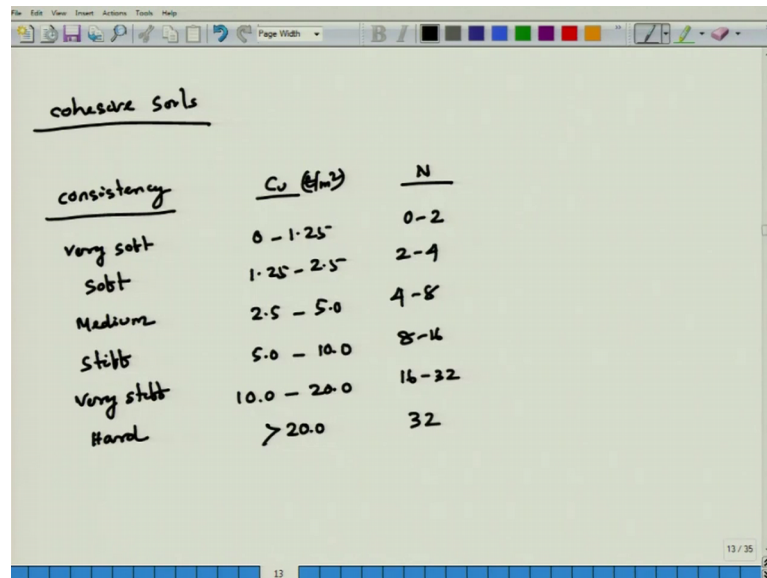 File Edit View Insert Actions Tools Help
Page Width
B I
cohesive soils
consistency Cu (t/m²) N
Very soft 0 - 1.25 0-2
Soft 1.25 - 2.5 2-4
Medium 2.5 - 5.0 4-8
Stiff 5.0 - 10.0 8-16
Very stiff 10.0 - 20.0 16-32
Hard >20.0 32
13 / 35
13